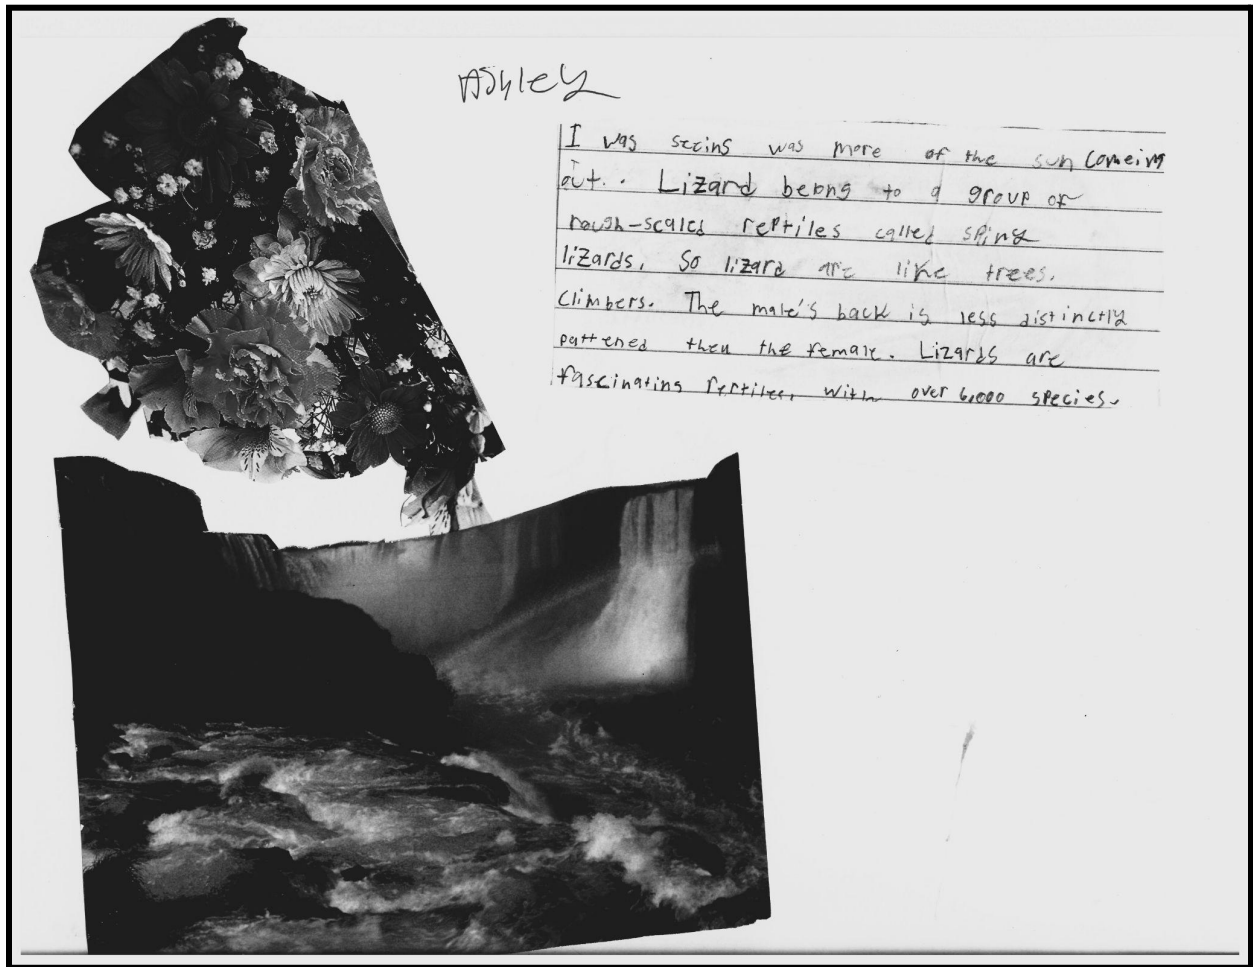 Ashley
I was seeing was more of the sun comeing
out.. Lizard belong to a group of
rough-scaled reptiles called spiny
lizards. So lizard are like trees.
Climbers. The male's back is less distinctly
pattened then the female. Lizards are
fascinating reptiles, with over 6,000 species.